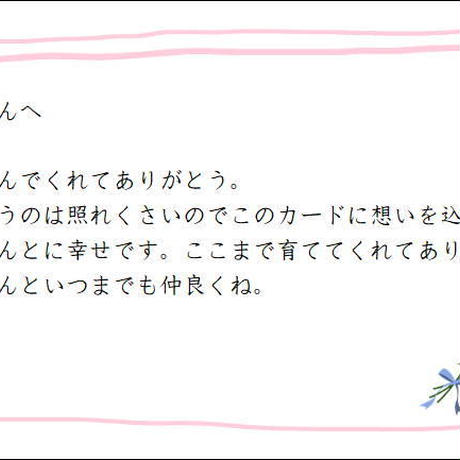 んへ
んでくれてありがとう。
うのは照れくさいのでこのカードに想いを込
んとに幸せです。ここまで育ててくれてあり
んといつまでも仲良くね。